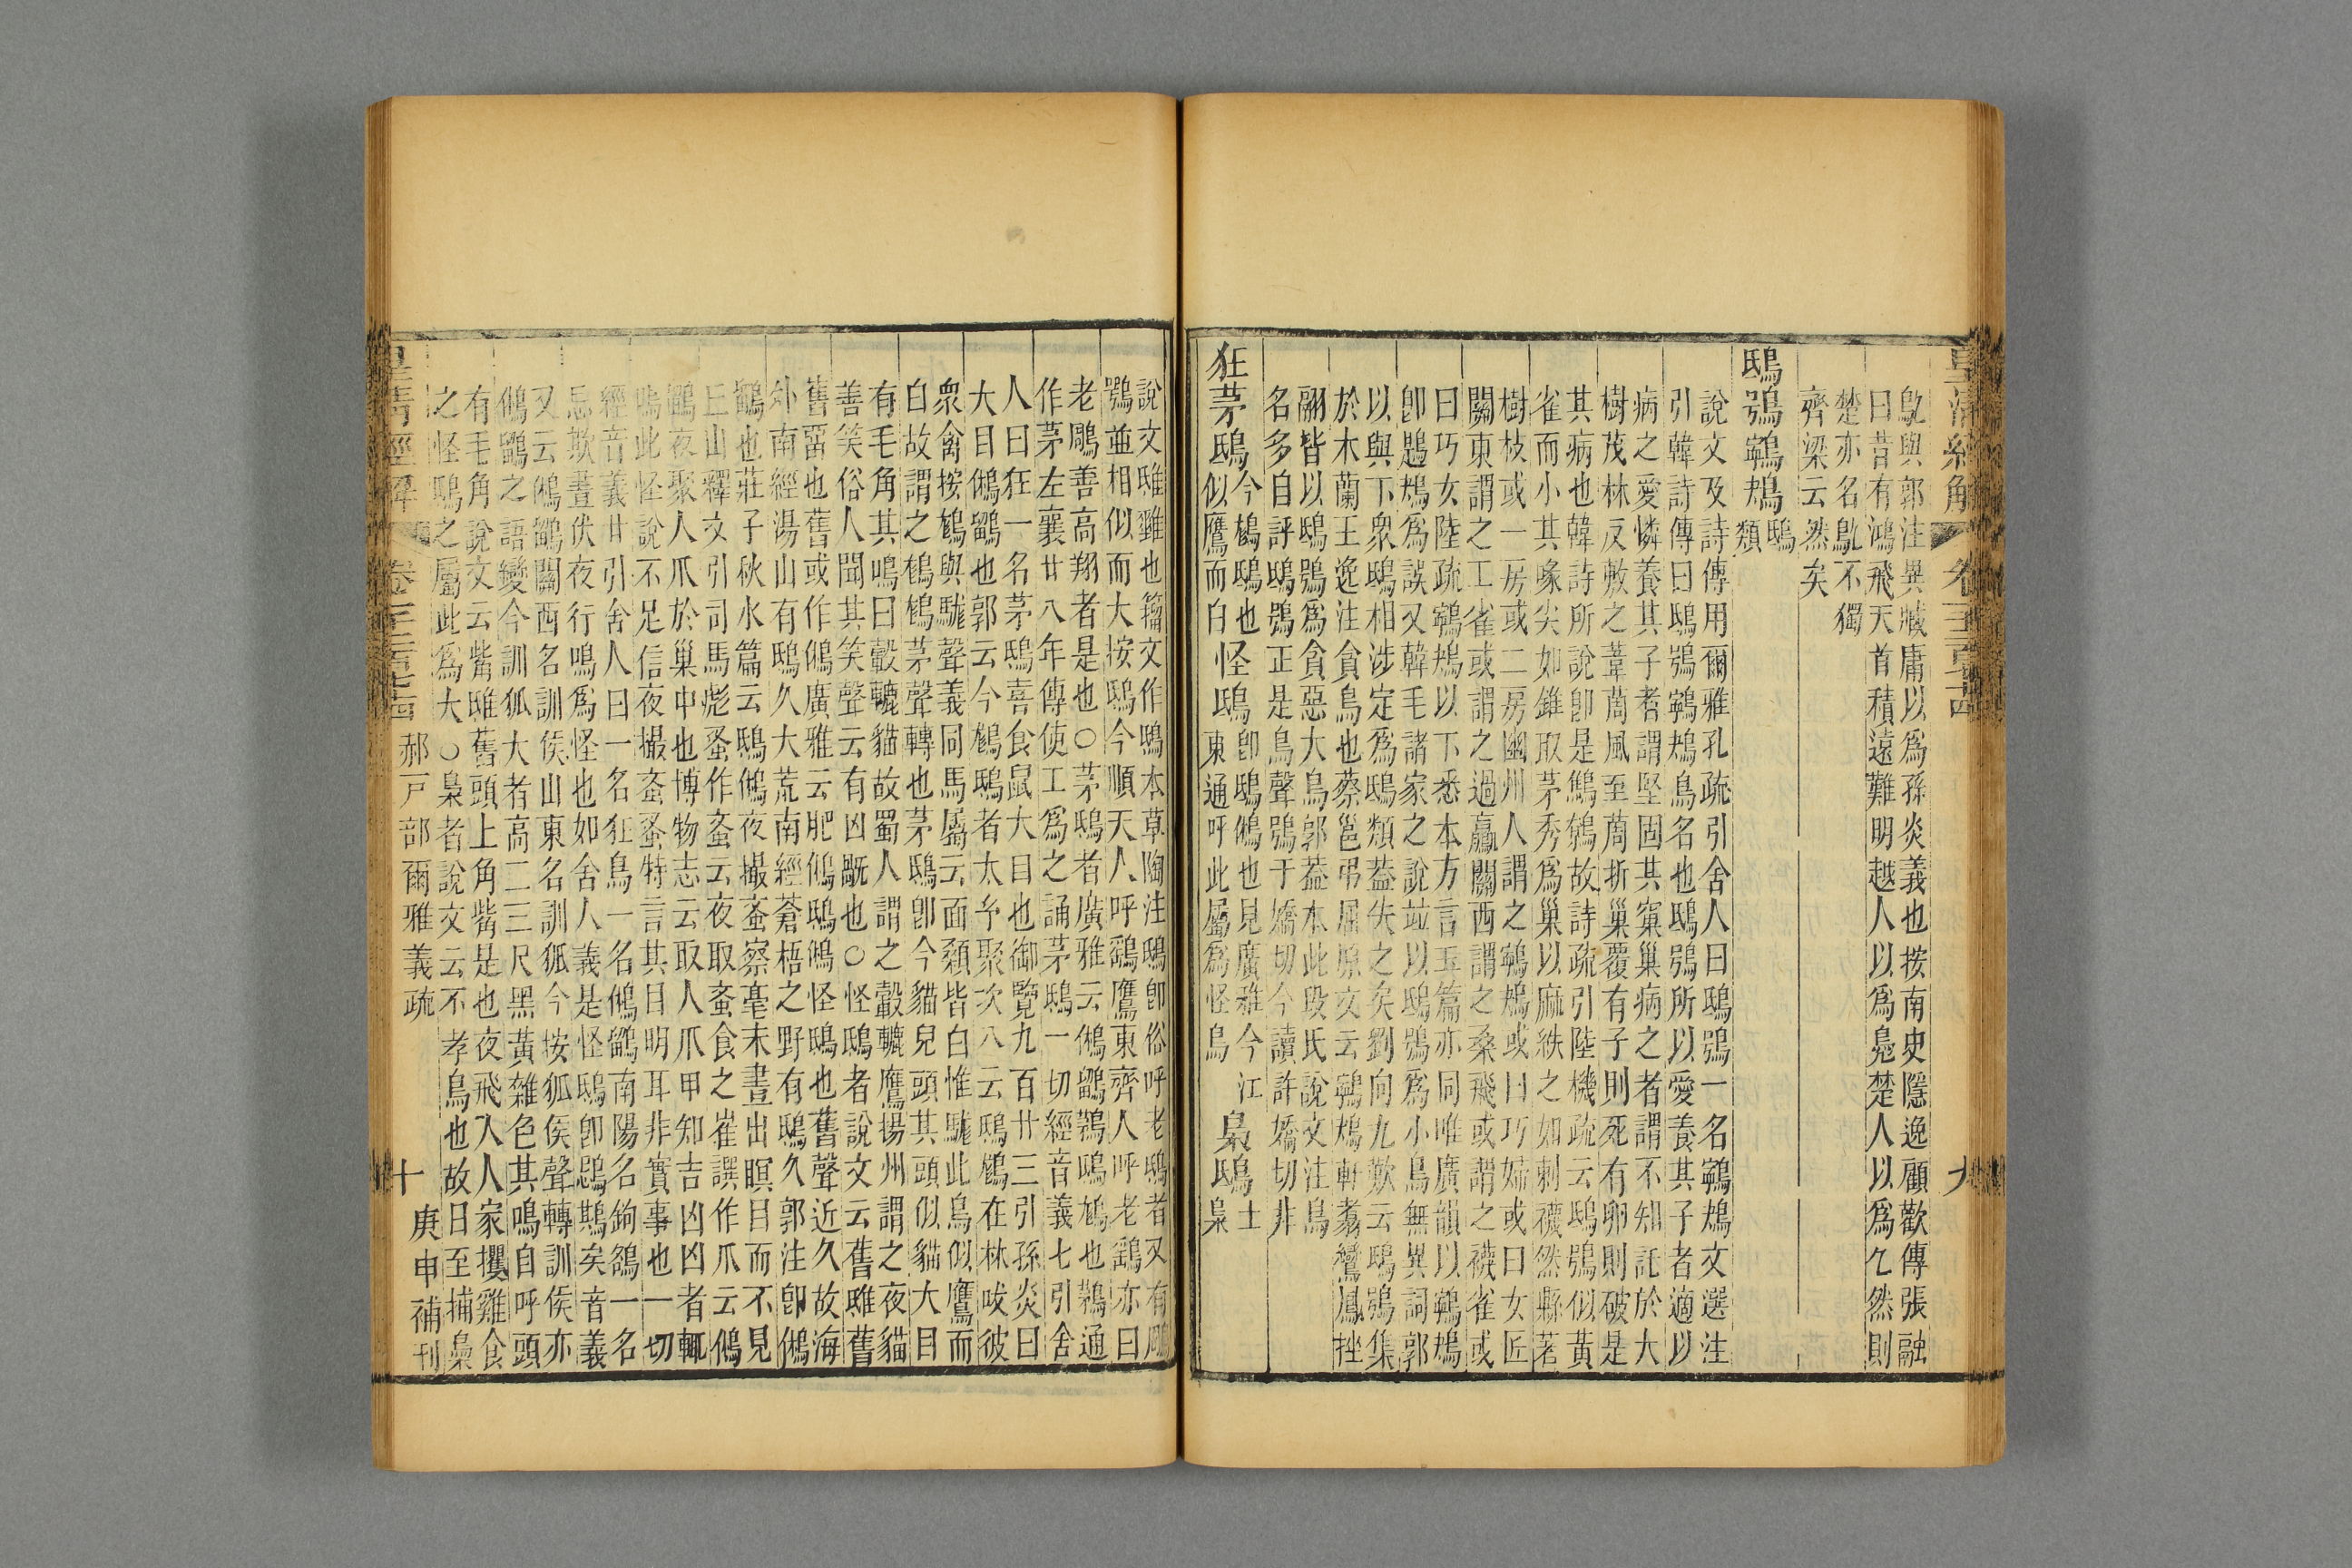 皇清經解 卷千二百七十四 九
鳦與郭注異臧庸以爲孫炎義也按南史隱逸顧歡傳張融
曰昔有鴻飛天首積遠難明越人以爲鳧楚人以爲乙然則
楚亦名鳦不獨
齊梁云然矣
鴟鴞鸋鴂鴟類
說文及詩傳用爾雅孔疏引舍人曰鴟鴞一名鸋鴂文選注
引韓詩傳曰鴟鴞鸋鴂鳥名也鴟鴞所以愛養其子者適以
病之愛憐養其子者謂堅固其窠巢病之者謂不知託於大
樹茂林反敷之葦䓖風至䓖折巢覆有子則死有卵則破是
其病也韓詩所說卽是鷦鷯故詩疏引陸機疏云鴟鴞似黃
雀而小其喙尖如錐取茅秀爲巢以麻紩之如刺襪然縣著
樹枝或一房或二房幽州人謂之鸋鴂或曰巧婦或曰女匠
關東謂之工雀或謂之過鸁關西謂之桑飛或謂之襪雀或
曰巧女陸疏鸋鴂以下悉本方言玉篇亦同唯廣韻以鸋鴂
卽鶗鴂爲誤又韓毛諸家之說竝以鴟鴞爲小鳥無異詞郭
以與下衆鴟相涉定爲鴟類葢失之矣劉向九歎云鴟鴞集
於木蘭王逸注貪鳥也蔡邕弔屈原文云鸋鴂軒翥鸞鳳挫
翮皆以鴟鴞爲貪惡大鳥郭葢本此段氏說文注鳥
名多自評鴟鴞正是鳥聲鴞于嬌切今讀許嬌切非
狂茅鴟今鵵鴟也似鷹而白怪鴟卽鴟鵂也見廣雅今江東通呼此屬爲怪鳥梟鴟土梟
說文雎雖也籀文作鴟本草陶注鴟卽俗呼老鴟者又有鵰
鶚並相似而大按鴟今順天人呼鷂鷹東齊人呼老鷂亦曰
老鵰善高翔者是也○茅鴟者廣雅云鵂鶹鵋鴟鳩也鵋通
作茅左襄廿八年傳使工爲之誦茅鴟一切經音義七引舍
人曰狂一名茅鴟喜食鼠大目也御覽九百廿三引孫炎曰
大目鵂鶹也郭云今鵵鴟者太予聚次八云鴟鵵在林咬彼
衆禽按鵵與駹聲義同馬屬云面顙皆白惟駹此鳥似鷹而
白故謂之鵵鵵茅聲轉也茅鴟卽今貓兒頭其頭似貓大目
有毛角其鳴曰轂轆貓故蜀人謂之轂轆鷹揚州謂之夜貓
善笑俗人聞其笑聲云有凶𣄴也○怪鴟者說文云舊雎舊
舊畱也舊或作鵂廣雅云肥鵂鴟鵂怪鴟也舊聲近久故海
外南經湯山有鴟久大荒南經蒼梧之野有鴟久郭注卽鵂
鶹也莊子秋水篇云鴟鵂夜撮蚤察毫末晝出瞑目而不見
丘山釋文引司馬彪蚤作蚉云夜取蚉食之崔譔作爪云鵂
鶹夜聚人爪於巢中也博物志云取人爪甲知吉凶凶者輒
鳴此怪說不足信夜撮蚉蚤特言其目明耳非實事也一切
經音義廿引舍人曰一名狂鳥一名鵂鶹南陽名鉤鵅一名
忌欺晝伏夜行鳴爲怪也如舍人義是怪鴟卽鵋䳢矣音義
又云鵂鶹關西名訓侯山東名訓狐今按狐侯聲轉訓侯亦
鵂鶹之語變今訓狐大者高二三尺黑黃雜色其鳴自呼頭
有毛角說文云觜雎舊頭上角觜是也夜飛入人家攫雞食
之怪鴟之屬此爲大○梟者說文云不孝鳥也故日至捕梟
皇清經解 卷千二百七十四 郝戸部爾雅義疏 十 庚申補刊